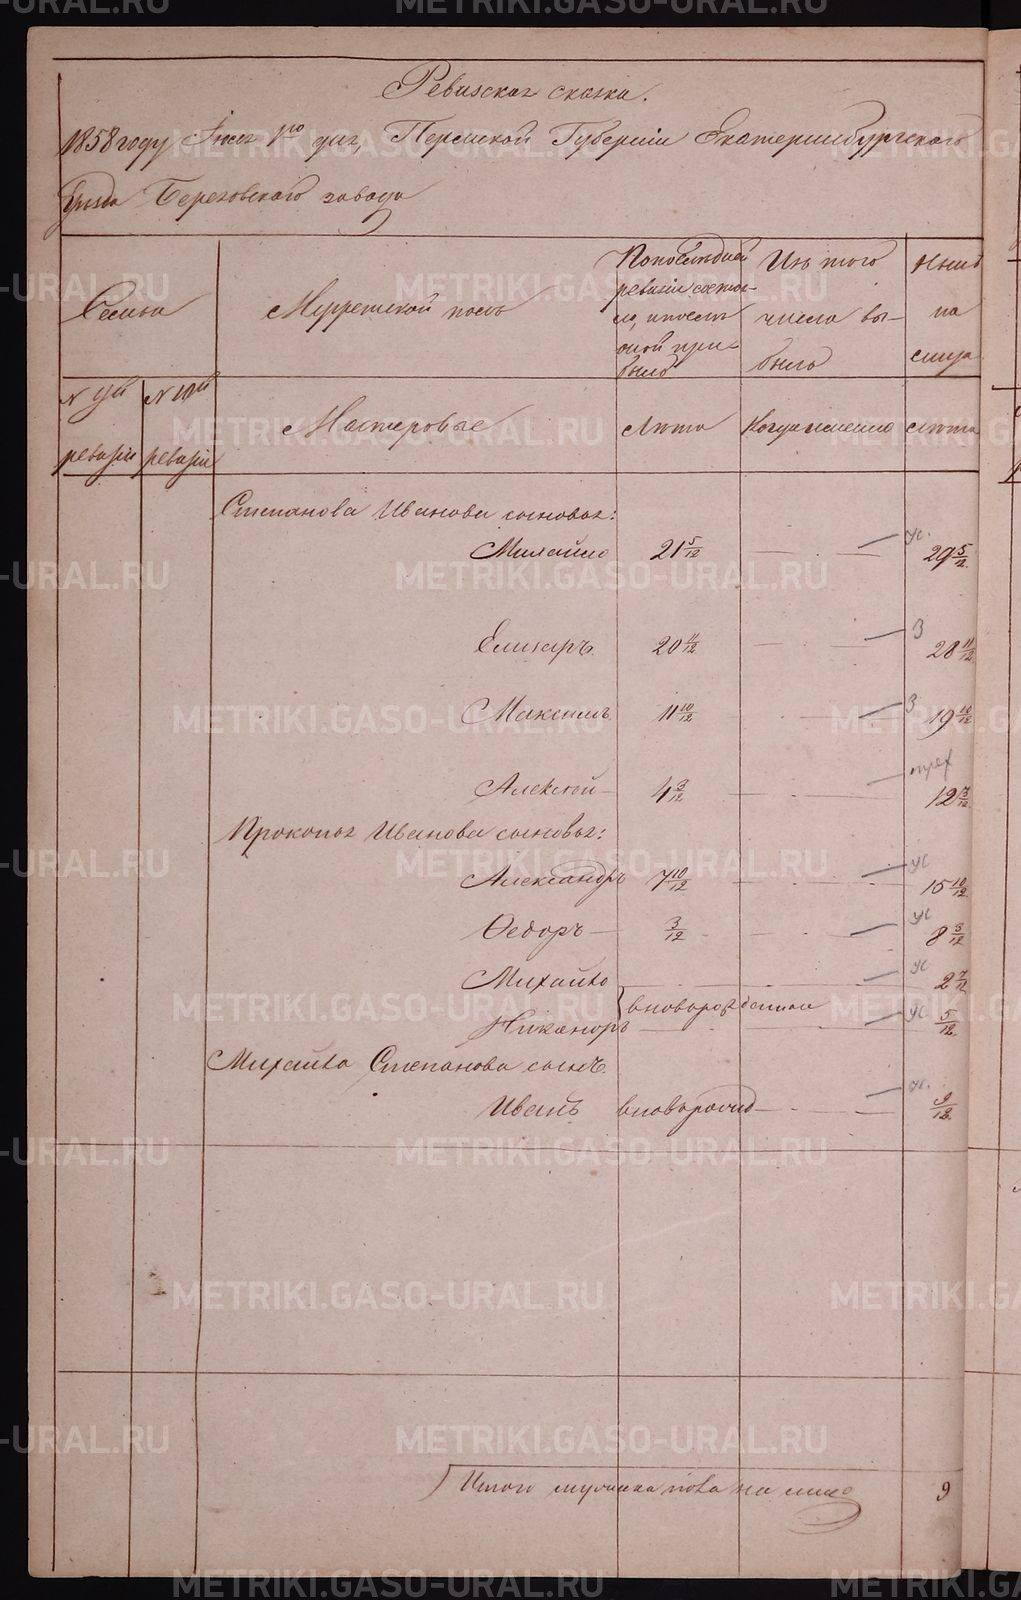 Ревизская сказка.
1858 году Іюня 1го дня, Пермской Губерніи Екатеринбургскаго
Уезда Березовскаго завода
Семьи
Муржеской полъ
По последней
ревизіи состо-
яло, и после
оной при-
было
Изъ того
числа вы-
было
Ныне
на
лица
N 9й
ревизіи
N 10й
ревизіи
Мастеровые
Лета
Когда именно
Лета
Степана Иванова сыновья:
Михайло 21 5/12 ус. 29 5/12
Елизаръ 20 11/12 3 28 11/12
Максимъ 11 10/12 3 19 10/12
Алексей 4 3/12 12 3/12
Прокопья Иванова сыновья:
Александръ 7 10/12 ус 15 10/12
Ѳедоръ 3/12 ус 8 3/12
Михайло ус 2 7/12
вноворожденныя
Никаноръ ус 5/12
Михайла Степанова сынъ.
Иванъ вноворожд ус. 9/12
Итого мужеска пола на лицо 9
METRIKI.GASO-URAL.RU